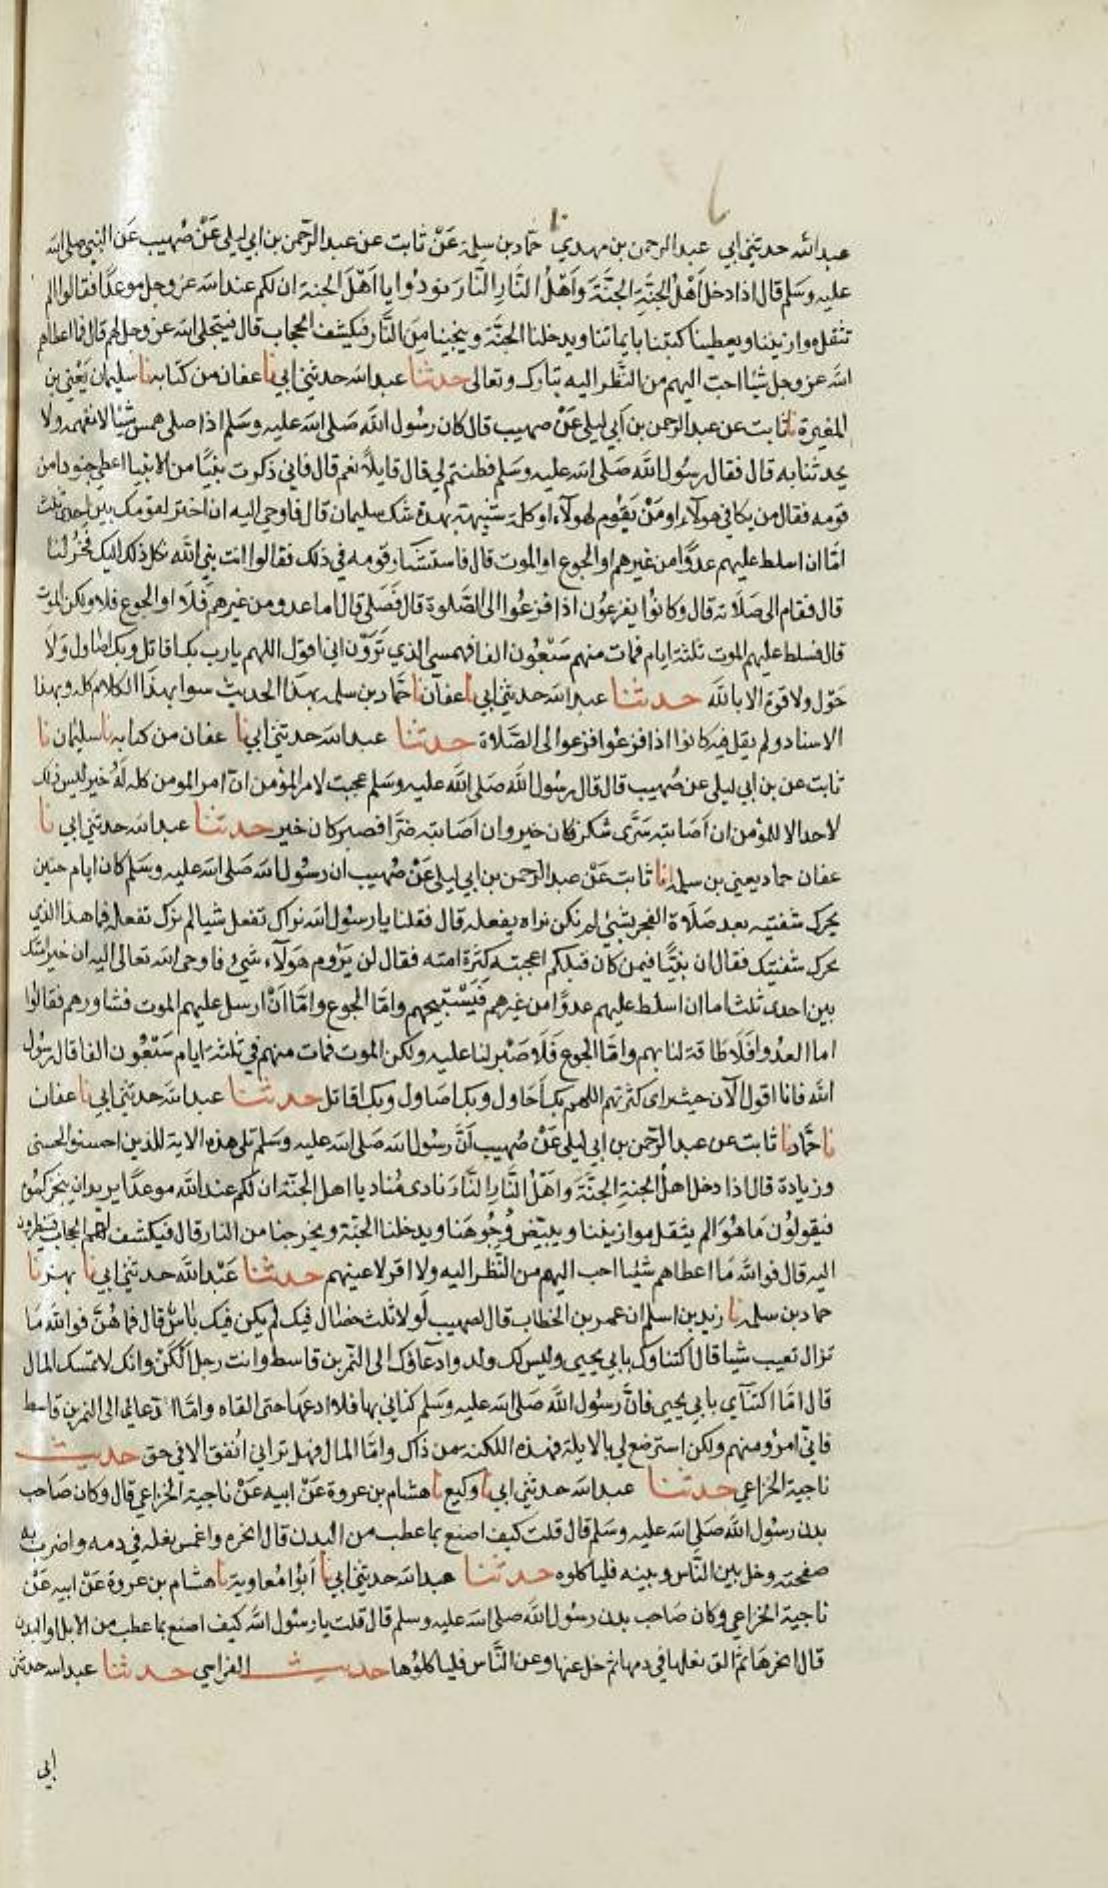 عبد الله حدثني ابي عبد الرحمن بن مهدي نا حماد بن سلمة عن ثابت عن عبد الرحمن بن ابي ليلى عن صهيب عن النبي صلى الله
عليه وسلم قال اذا دخل اهل الجنة الجنة واهل النار النار نودوا يا اهل الجنة ان لكم عند الله عز وجل موعدا فقالوا الم
تثقل موازيننا ويعطينا كتبنا بايماننا ويدخلنا الجنة وينجينا من النار فيكشف الحجاب قال فيتجلى الله عز وجل لهم قال فما اعطاهم
الله عز وجل شيا احب اليهم من النظر اليه تبارك وتعالى حدثنا عبد الله حدثني ابي نا عفان من كتابه نا سليمان يعني بن
المغيرة نا ثابت عن عبد الرحمن بن ابي ليلى عن صهيب قال كان رسول الله صلى الله عليه وسلم اذا صلى همس شيا لا نفهمه ولا
يحدثنا به قال فقال رسول الله صلى الله عليه وسلم فطنتم لي قال قايلا نعم قال فاني ذكرت نبيا من الانبيا اعطي جنودا من
قومه فقال من يكافي هولاء او من يقوم لهولاء او كلمة شبيهة بهذه شك سليمان قال فاوحي اليه ان اختر لقومك بين احدى ثلث
اما ان اسلط عليهم عدوا من غيرهم او الجوع او الموت قال فاستشار قومه في ذلك فقالوا انت نبي الله نكل ذلك اليك فخر لنا
قال فقام الى صلاته قال وكانوا يفزعون اذا فزعوا الى الصلوة قال فصلى قال اما عدو من غيرهم فلا او الجوع فلا ولكن الموت
قال فسلط عليهم الموت ثلثة ايام فمات منهم سبعون الفا فهمسي الذي ترون اني اقول اللهم يا رب بك اقاتل وبك اصاول ولا
حول ولا قوة الا بالله حدثنا عبد الله حدثني ابي نا عفان نا حماد بن سلمه بهذا الحديث سوا بهذا الكلام كله وبهذا
الاسناد ولم يقل فيه كانوا اذا فزعوا فزعوا الى الصلاة حدثنا عبد الله حدثني ابي نا عفان من كتابه نا سليمان نا
ثابت عن بن ابي ليلى عن صهيب قال قال رسول الله صلى الله عليه وسلم عجبت لامر المؤمن ان امر المومن كله له خير ليس ذلك
لاحد الا للمؤمن ان اصابته سرى شكر فكان خير وان اصابته ضرا فصبر كان خير حدثنا عبد الله حدثني ابي نا
عفان حماد يعني بن سلمه انا ثابت عن عبد الرحمن بن ابي ليلى عن صهيب ان رسول الله صلى الله عليه وسلم كان ايام حنين
يحرك شفتيه بعد صلاة الفجر بشئ لم نكن نراه يفعله قال فقلنا يا رسول الله نراك تفعل شيا لم نرك تفعله فما هذا الذي
تحرك شفتيك فقال ان نبيا فيمن كان قبلكم اعجبته كثرة امته فقال لن يروم هولاء شئ فاوحى الله تعالى اليه ان خير امتك
بين احدى ثلث اما ان اسلط عليهم عدوا من غيرهم فيستبيحهم واما الجوع واما ان ارسل عليهم الموت فشاورهم فقالوا
اما العدو فلا طاقة لنا بهم واما الجوع فلا صبر لنا عليه ولكن الموت فمات منهم في ثلثة ايام سبعون الفا قال رسول
الله فانا اقول الآن حيث راى كثرتهم اللهم بك احاول وبك اصاول وبك اقاتل حدثنا عبد الله حدثني ابي نا عفان
نا حماد نا ثابت عن عبد الرحمن بن ابي ليلى عن صهيب ان رسول الله صلى الله عليه وسلم تلى هذه الاية للذين احسنوا الحسنى
وزيادة قال اذا دخل اهل الجنة الجنة واهل النار النار نادى مناد يا اهل الجنة ان لكم عند الله موعدا يريد ان ينجزكموه
فيقولون ما هو الم يثقل موازيننا ويبيض وجوهنا ويدخلنا الجنة ويخرجنا من النار قال فيكشف لهم الحجاب فينظرون
اليه قال فوالله ما اعطاهم شيا احب اليهم من النظر اليه ولا اقر لاعينهم حدثنا عبد الله حدثني ابي نا بهز نا
حماد بن سلمه نا زيد بن اسلم ان عمر بن الخطاب قال لصهيب لولا ثلث خصال فيك لم يكن فيك باس قال فما هن فوالله ما
نزال تعيب شيا قال اكتناوك بابي يحيى وليس لك ولد وادعاؤك الى النمر بن قاسط وانت رجل الكن وانك لا تمسك المال
قال اما اكتنآي بابي يحيى فان رسول الله صلى الله عليه وسلم كناني بها فلا ادعها حتى القاه واما ادعائي الى النمر بن قاسط
فاني امرؤ منهم ولكن استرضع لي بالايلة فهذه اللكنة من ذاك واما المال فهل تراني انفق الا في حق حديث
ناجية الخزاعي حدثنا عبد الله حدثني ابي نا وكيع نا هشام بن عروة عن ابيه عن ناجية الخزاعي قال وكان صاحب
بدن رسول الله صلى الله عليه وسلم قال قلت كيف اصنع بما عطب من البدن قال انحره واغمس نعله في دمه واضرب به
صفحته وخل بين الناس وبينه فلياكلوه حدثنا عبد الله حدثني ابي نا ابو معاوية نا هشام بن عروة عن ابيه عن
ناجية الخزاعي وكان صاحب بدن رسول الله صلى الله عليه وسلم قال قلت يا رسول الله كيف اصنع بما عطب من الابل او البدن
قال انحرها ثم الق نعلها في دمها ثم خل عنها وعن الناس فلياكلوها حديث الفراسي حدثنا عبد الله حدثني
ابي